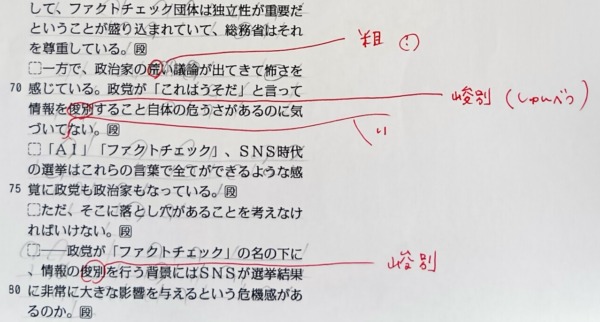 して、ファクトチェック団体は独立性が重要だ
ということが盛り込まれていて、総務省はそれ
を尊重している。段
粗
□一方で、政治家の荒い議論が出てきて怖さを
70 感じている。政党が「これはうそだ」と言って
峻別(しゅんべつ)
情報を俊別すること自体の危うさがあるのに気
づいてない。段
い
□「AI」「ファクトチェック」、SNS時代
の選挙はこれらの言葉で全てができるような感
75 覚に政党も政治家もなっている。段
□ただ、そこに落とし穴があることを考えなけ
ればいけない。段
□――政党が「ファクトチェック」の名の下に
、情報の俊別を行う背景にはSNSが選挙結果
峻別
80 に非常に大きな影響を与えるという危機感があ
るのか。段